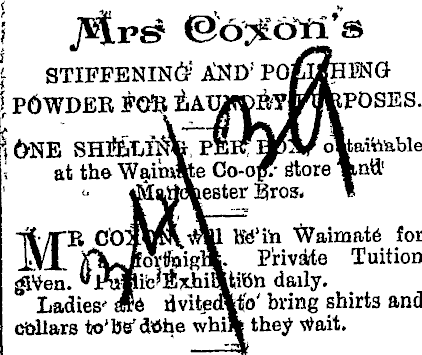 Mrs Coxon's
STIFFENING AND POLISHING
POWDER FOR LAUNDRY PURPOSES.
ONE SHILLING PER BOX, obtainable
at the Waimate Co-op. store and
Manchester Bros.
MR COXON will be in Waimate for
fortnight. Private Tuition
given. Public Exhibition daily.
Ladies are nvited to bring shirts and
collars to be done while they wait.